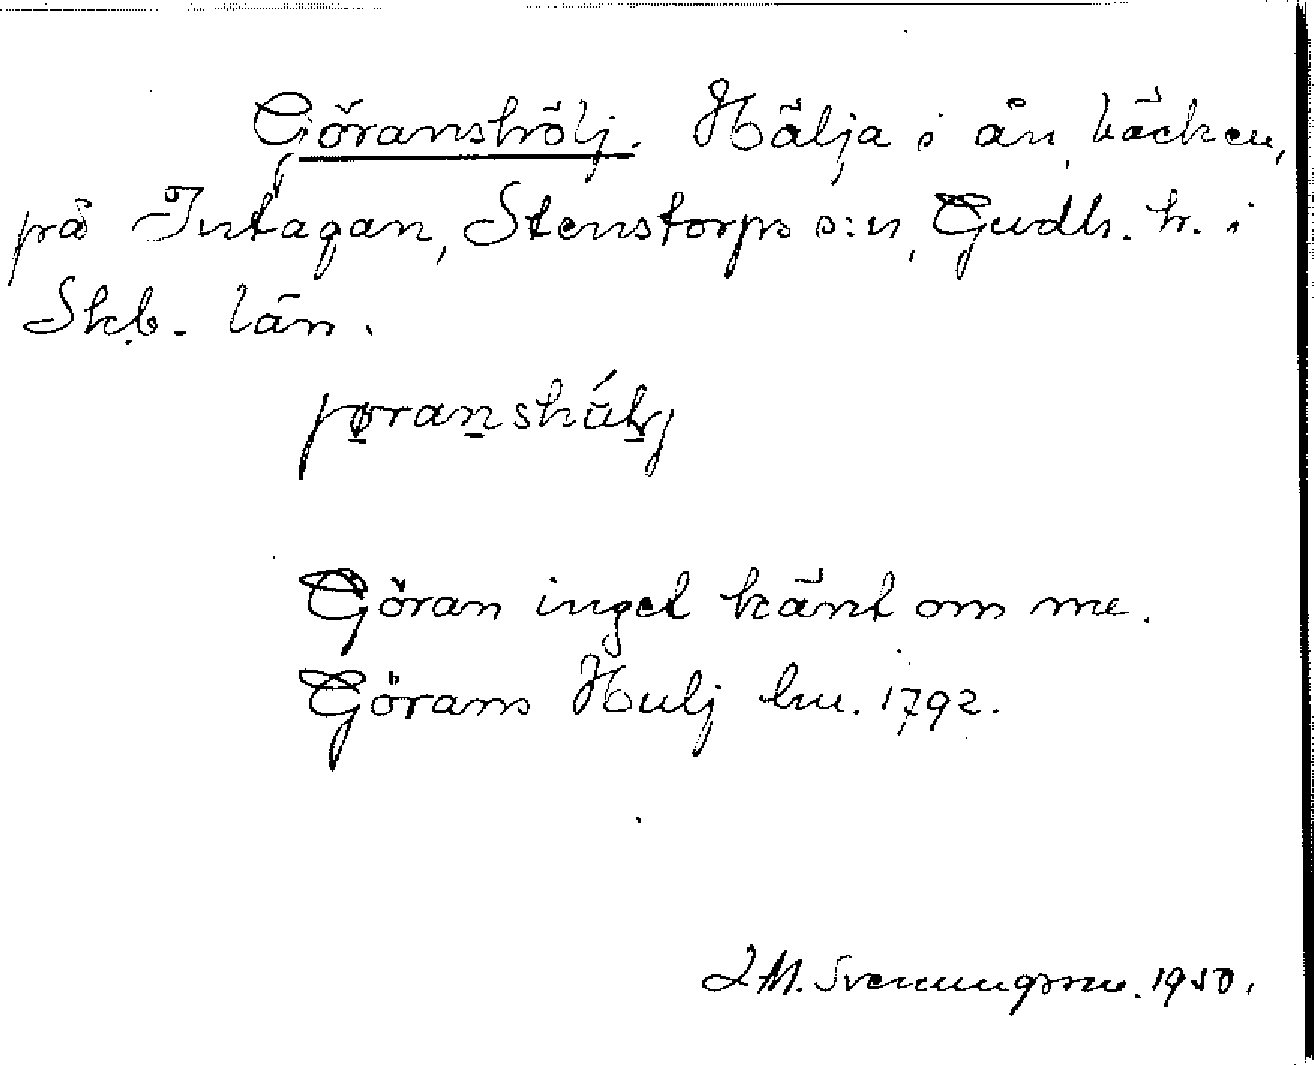 Göranshölj. Hälja i ån, bäcken,
på Intagan, Stenstorps s:n, Gudh. h. i
Skb. län.
jøranshúlj
Göran inget känt om me.
Görans Hulj hm. 1792.
L M. Svenungsson. 1950.